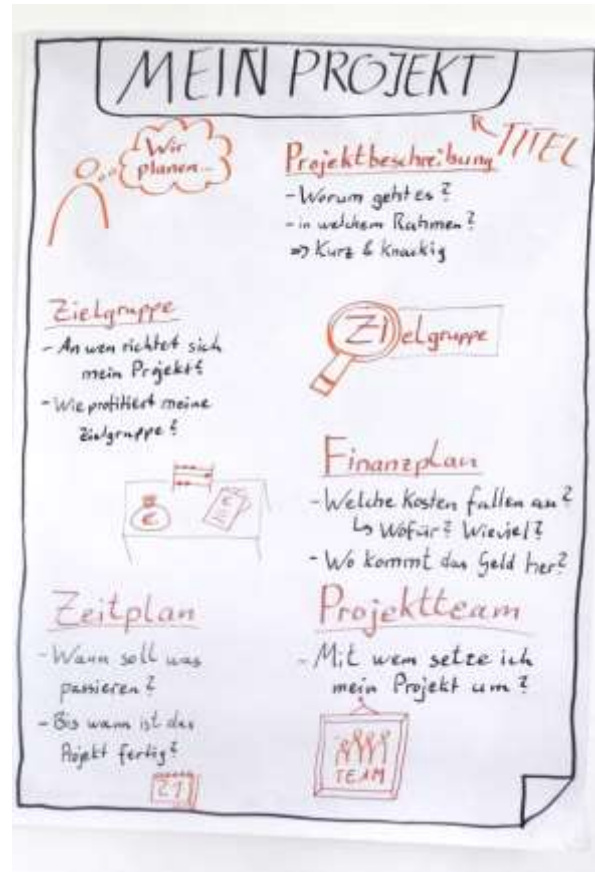 MEIN PROJEKT
TITEL
Wir
planen...
Projektbeschreibung
- Worum geht es?
- in welchem Rahmen?
=> Kurz & knackig
Zielgruppe
- An wen richtet sich
mein Projekt?
- Wie profitiert meine
Zielgruppe?
Zielgruppe
Finanzplan
- Welche Kosten fallen an?
↳ Wofür? Wieviel?
- Wo kommt das Geld her?
€
Zeitplan
- Wann soll was
passieren?
- Bis wann ist das
Projekt fertig?
21
Projektteam
- Mit wem setze ich
mein Projekt um?
TEAM